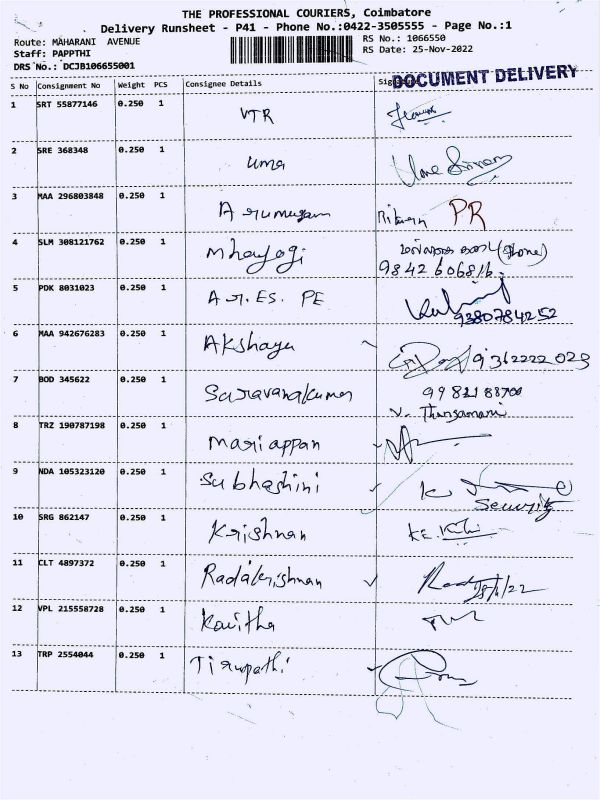 THE PROFESSIONAL COURIERS, Coimbatore
Delivery Runsheet - P41 - Phone No.:0422-3505555 - Page No.:1
Route: MAHARANI AVENUE
RS No.: 1066550
Staff: PAPPTHI
RS Date: 25-Nov-2022
DRS No.: DCJB106655001
DOCUMENT DELIVERY
S No Consignment No Weight PCS Consignee Details
1 SRT 55877146 0.250 1 VTR
2 SRE 368348 0.250 1 Uma
3 MAA 296803848 0.250 1 Arumugam PR
4 SLM 308121762 0.250 1 Mhayogi (Phone)
9842606816
5 PDK 8031023 0.250 1 A.R.ES. PE
9380784252
6 MAA 942676283 0.250 1 Akshaya 9362222023
7 BOD 345622 0.250 1 Saravanakumar
V. Thangamani
8 TRZ 190787198 0.250 1 Mariappan
9 NDA 105323120 0.250 1 Subhashini
Security
10 SRG 862147 0.250 1 Krishnan
11 CLT 4897372 0.250 1 Radakrishnan
12 VPL 215558728 0.250 1 Kavitha
13 TRP 2554044 0.250 1 Tirupathi